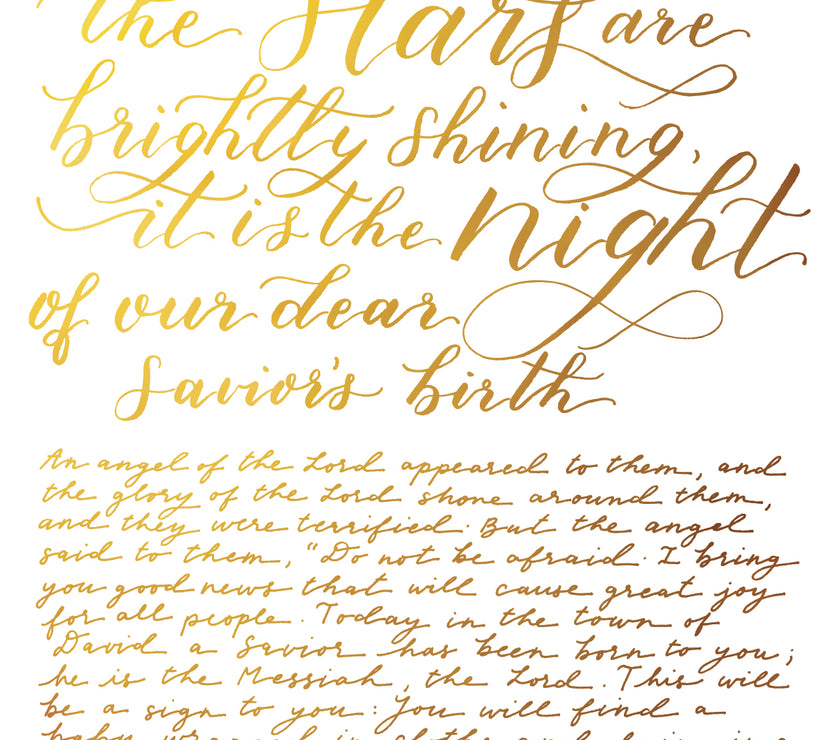 the Stars are
brightly shining,
it is the night
of our dear
Savior's birth
An angel of the Lord appeared to them, and
the glory of the Lord shone around them,
and they were terrified. But the angel
said to them, "Do not be afraid. I bring
you good news that will cause great joy
for all people. Today in the town of
David a Savior has been born to you;
he is the Messiah, the Lord. This will
be a sign to you: You will find a
baby wrapped in